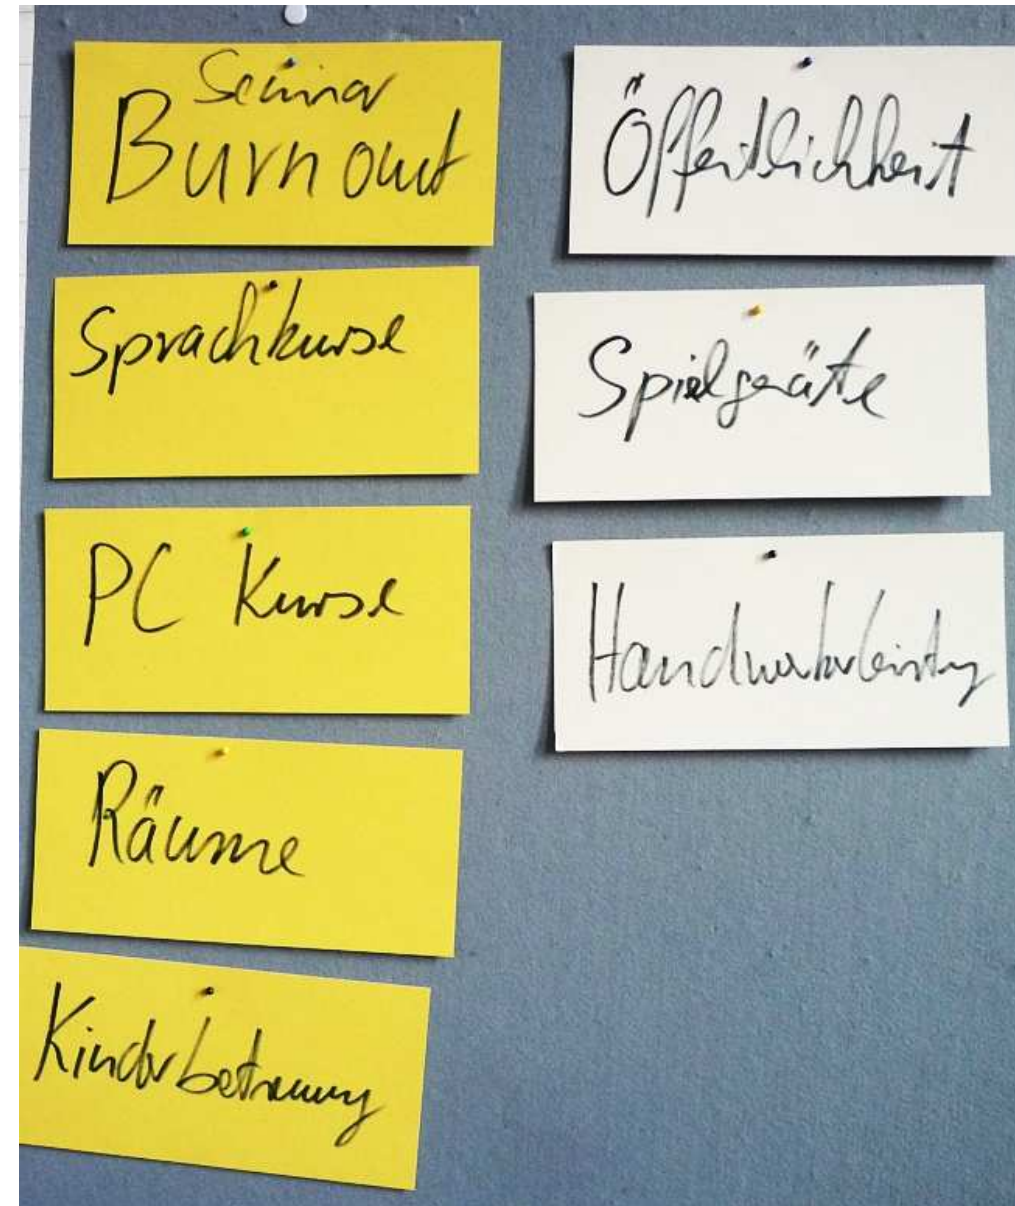 Seminar
Burnout
Sprachkurse
PC Kurse
Räume
Kinderbetreuung
Öffentlichkeit
Spielgeräte